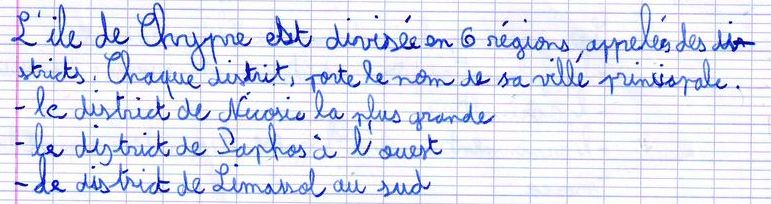 L'île de Chypre est divisée en 6 régions, appelées des di-
stricts. Chaque distrit, porte le nom de sa ville principale.
- le district de Nicosie la plus grande
- le district de Paphos à l'ouest
- le district de Limassol au sud